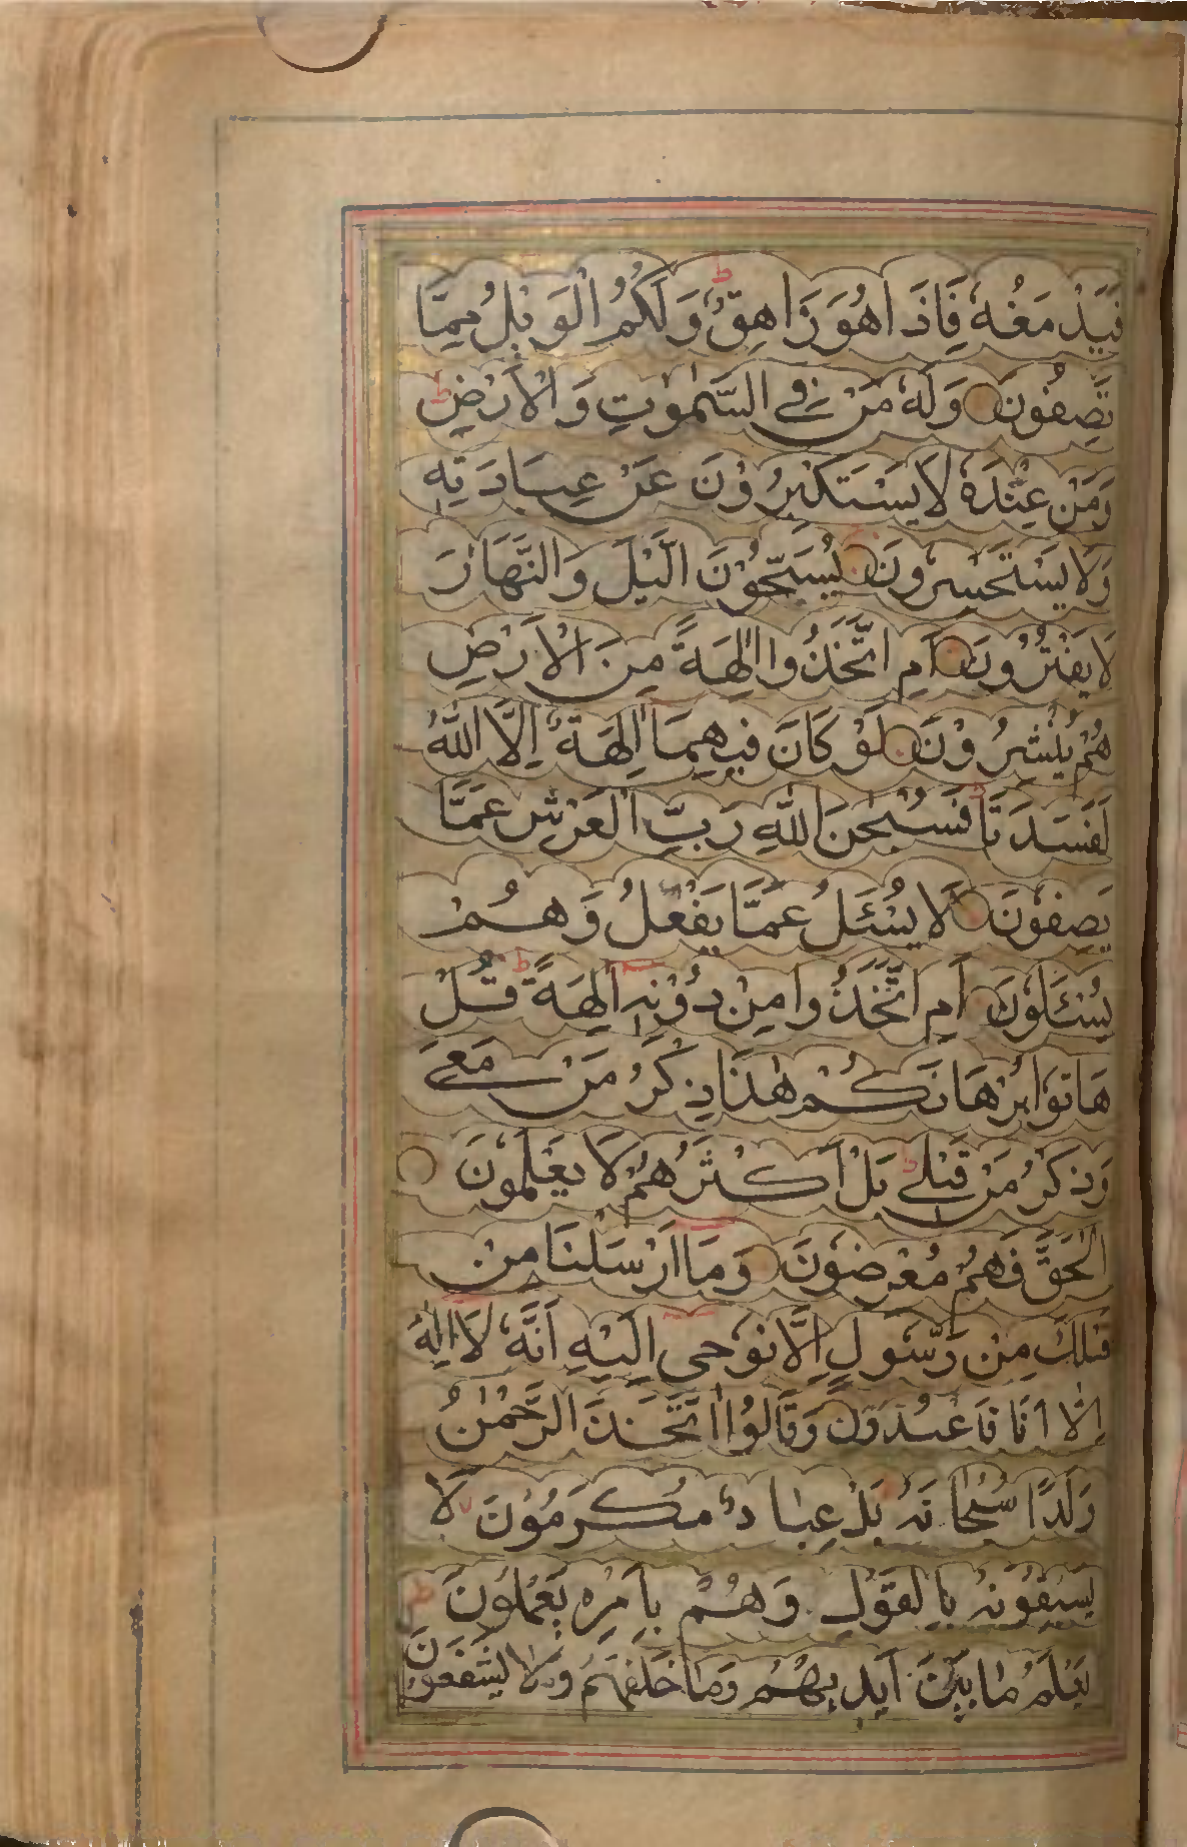 فَيَدْمَغُهٗ فَاِذَا هُوَ زَاهِقٌ ؕ وَلَكُمُ الْوَيْلُ مِمَّا
تَصِفُوْنَ وَلَهٗ مَنْ فِي السَّمٰوٰتِ وَالْاَرْضِ ؕ
وَمَنْ عِنْدَهٗ لَا يَسْتَكْبِرُوْنَ عَنْ عِبَادَتِهٖ
وَلَا يَسْتَحْسِرُوْنَ يُسَبِّحُوْنَ الَّيْلَ وَالنَّهَارَ
لَا يَفْتُرُوْنَ اَمِ اتَّخَذُوا اٰلِهَةً مِنَ الْاَرْضِ
هُمْ يُنْشِرُوْنَ لَوْ كَانَ فِيْهِمَا اٰلِهَةٌ اِلَّا اللّٰهُ
لَفَسَدَتَا ؕ فَسُبْحٰنَ اللّٰهِ رَبِّ الْعَرْشِ عَمَّا
يَصِفُوْنَ لَا يُسْئَلُ عَمَّا يَفْعَلُ وَهُمْ
يُسْئَلُوْنَ اَمِ اتَّخَذُوا مِنْ دُوْنِهٖ اٰلِهَةً ؕ قُلْ
هَاتُوْا بُرْهَانَكُمْ هٰذَا ذِكْرُ مَنْ مَعِيَ
وَذِكْرُ مَنْ قَبْلِيْ ؕ بَلْ اَكْثَرُهُمْ لَا يَعْلَمُوْنَ
الْحَقَّ فَهُمْ مُعْرِضُوْنَ وَمَا اَرْسَلْنَا مِنْ
قَبْلِكَ مِنْ رَّسُوْلٍ اِلَّا نُوْحِى اِلَيْهِ اَنَّهٗ لَا اِلٰهَ
اِلَّا اَنَا فَاعْبُدُوْنِ وَقَالُوا اتَّخَذَ الرَّحْمٰنُ
وَلَدًا سُبْحَانَهٗ بَلْ عِبَادٌ مُكْرَمُوْنَ لَا
يَسْبِقُوْنَهٗ بِالْقَوْلِ وَهُمْ بِاَمْرِهٖ يَعْمَلُوْنَ ؕ
يَعْلَمُ مَا بَيْنَ اَيْدِيْهِمْ وَمَا خَلْفَهُمْ وَلَا يَشْفَعُوْنَ